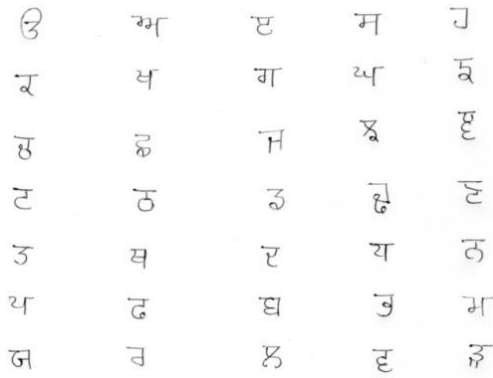 ੳ ਅ ੲ ਸ ਹ
ਕ ਖ ਗ ਘ ਙ
ਚ ਛ ਜ ਝ ਞ
ਟ ਠ ਡ ਢ ਣ
ਤ ਥ ਦ ਧ ਨ
ਪ ਫ ਬ ਭ ਮ
ਯ ਰ ਲ ਵ ੜ